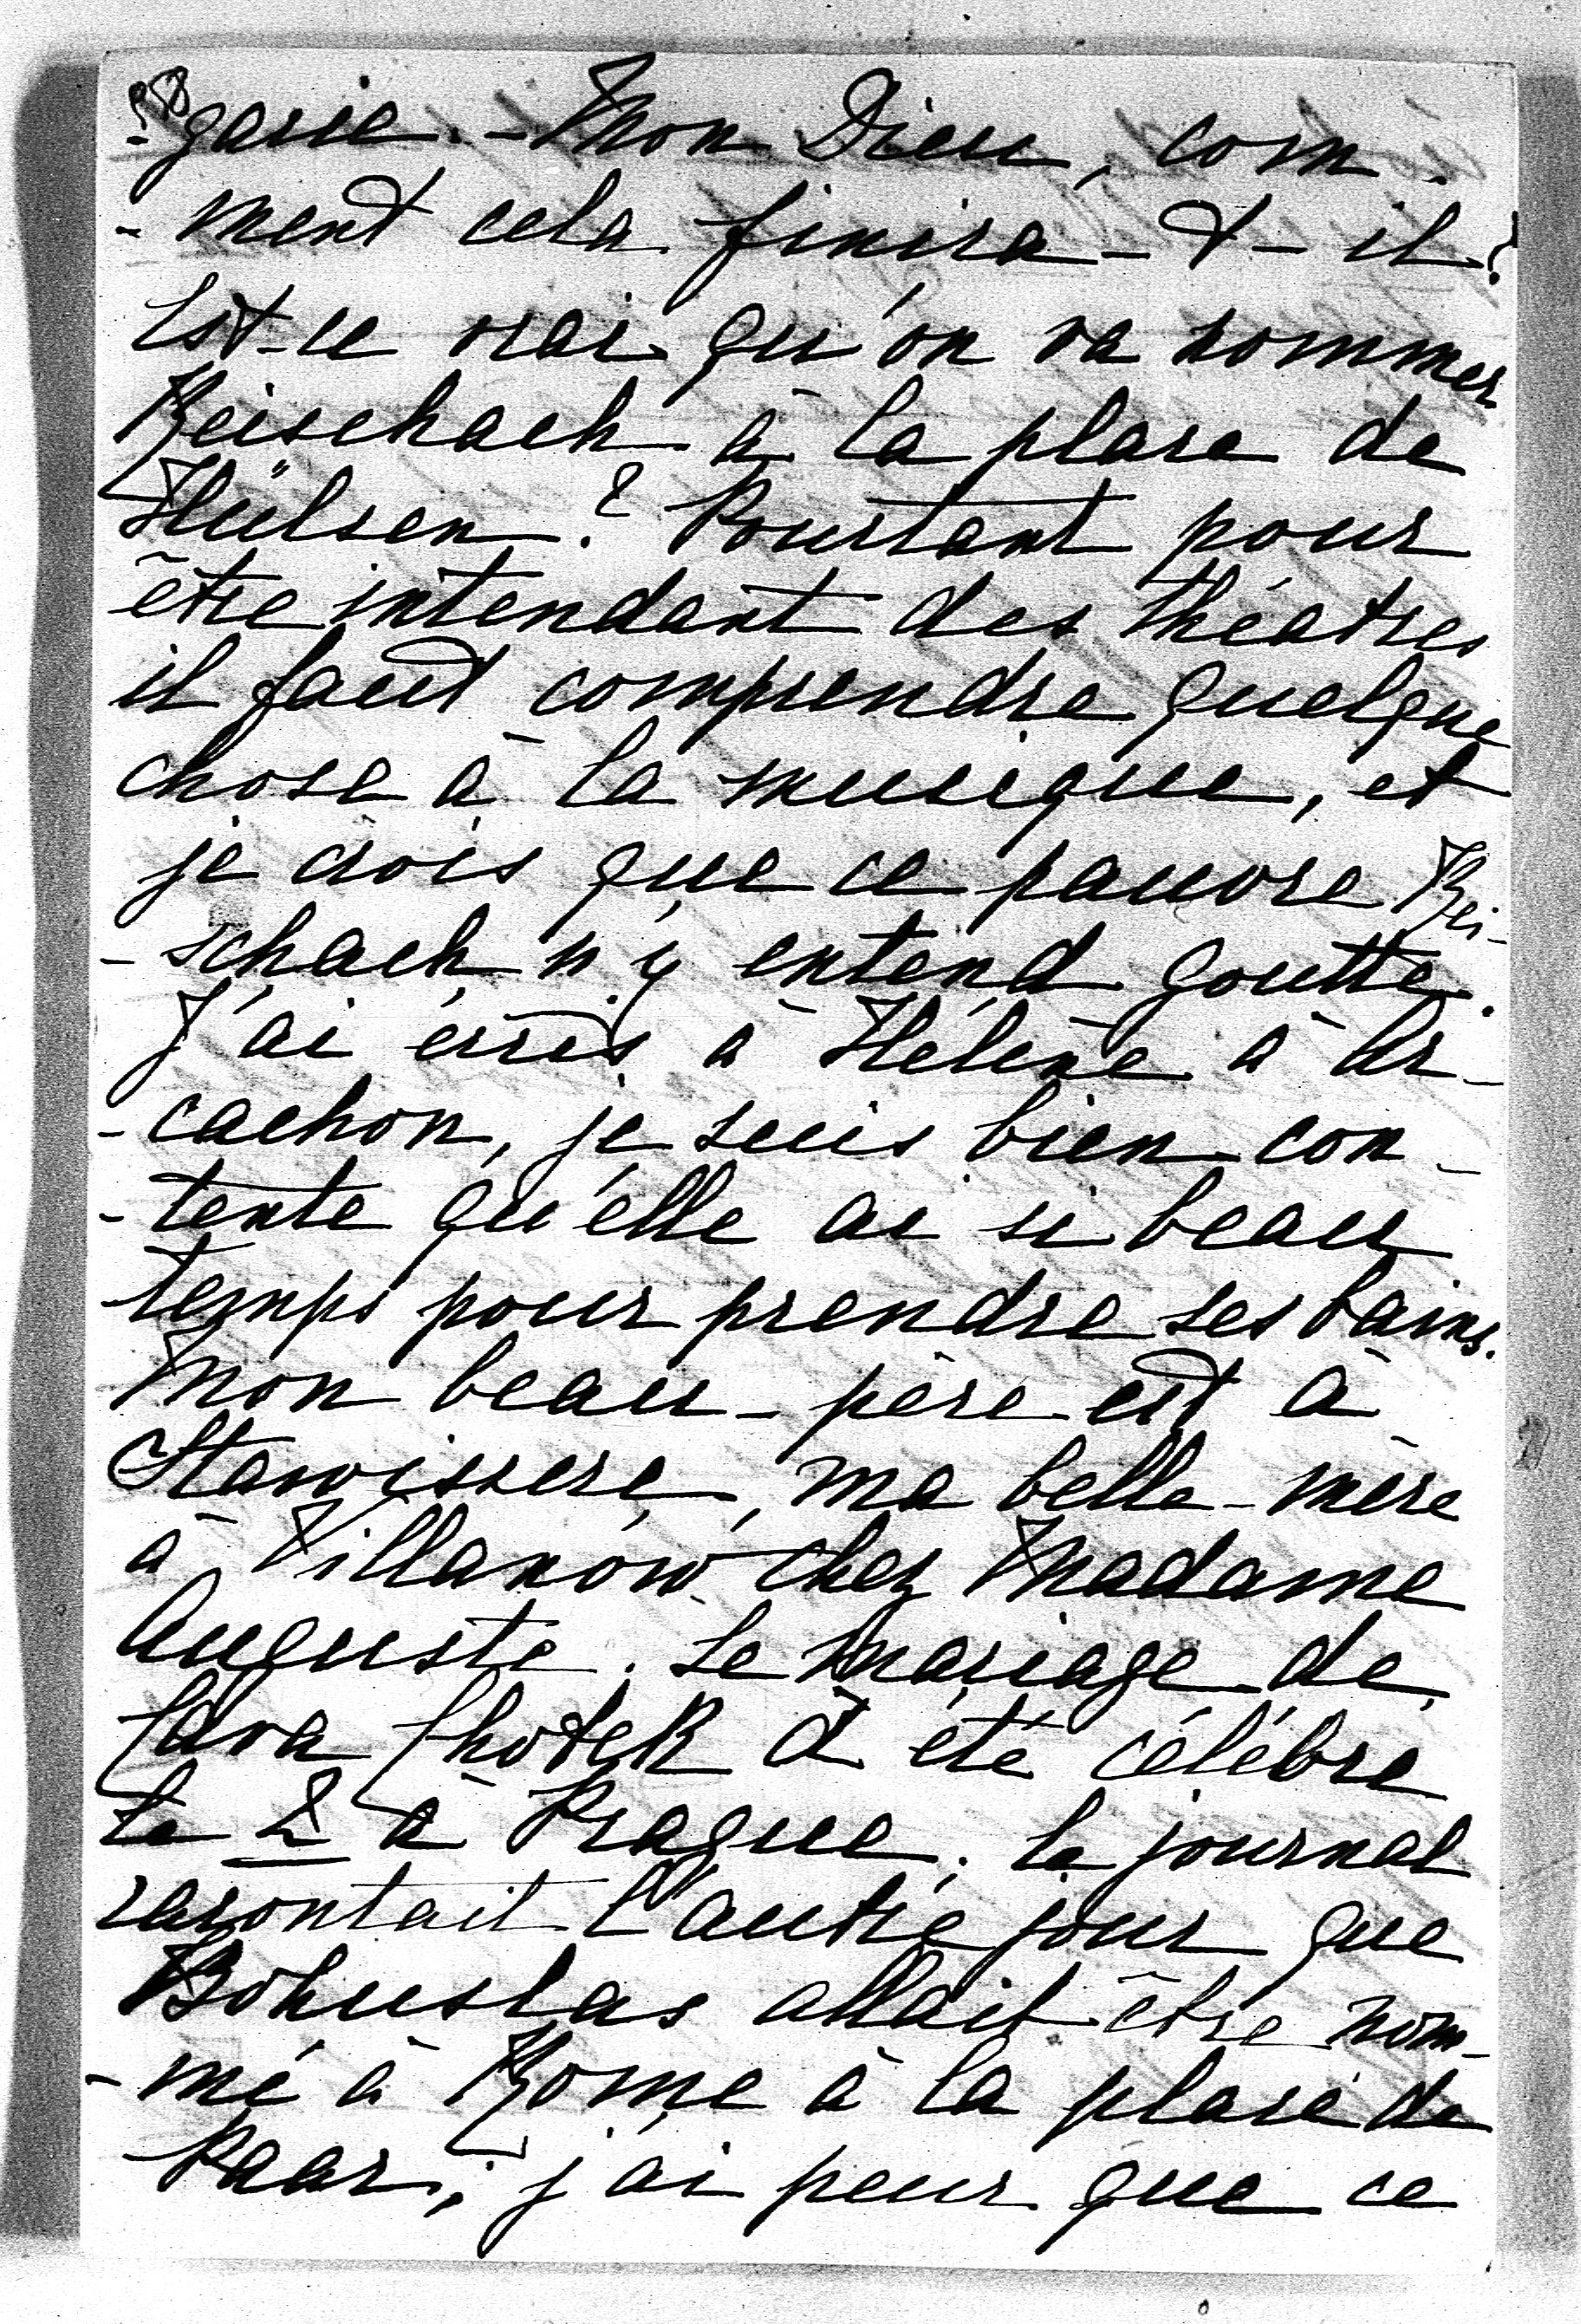 -garie. - Mon Dieu, com-
-ment cela finira-t-il?
Est-ce vrai qu'on va nommer
Reischach à la place de
Hülsen? Pourtant pour
être intendant des théatres
il faut comprendre quelque
chose à la musique, et
je crois que ce pauvre Rei-
-schach n'y entend goutte.
J'ai écris à Hélène à Ar-
-cachon, je suis bien con-
-tente qu'elle ai si beau
temps pour prendre ses bains.
Mon beau-père est à
Stawiszcze, ma belle-mère
à Villanów chez Madame
Auguste. Le mariage de
Chotek a été célébre
le 2 à Prague. Le journal
racontait l'autre jour que
Bohuslas allait être nom-
-mé à Rome à la place de
Paar; j'ai peur que ce